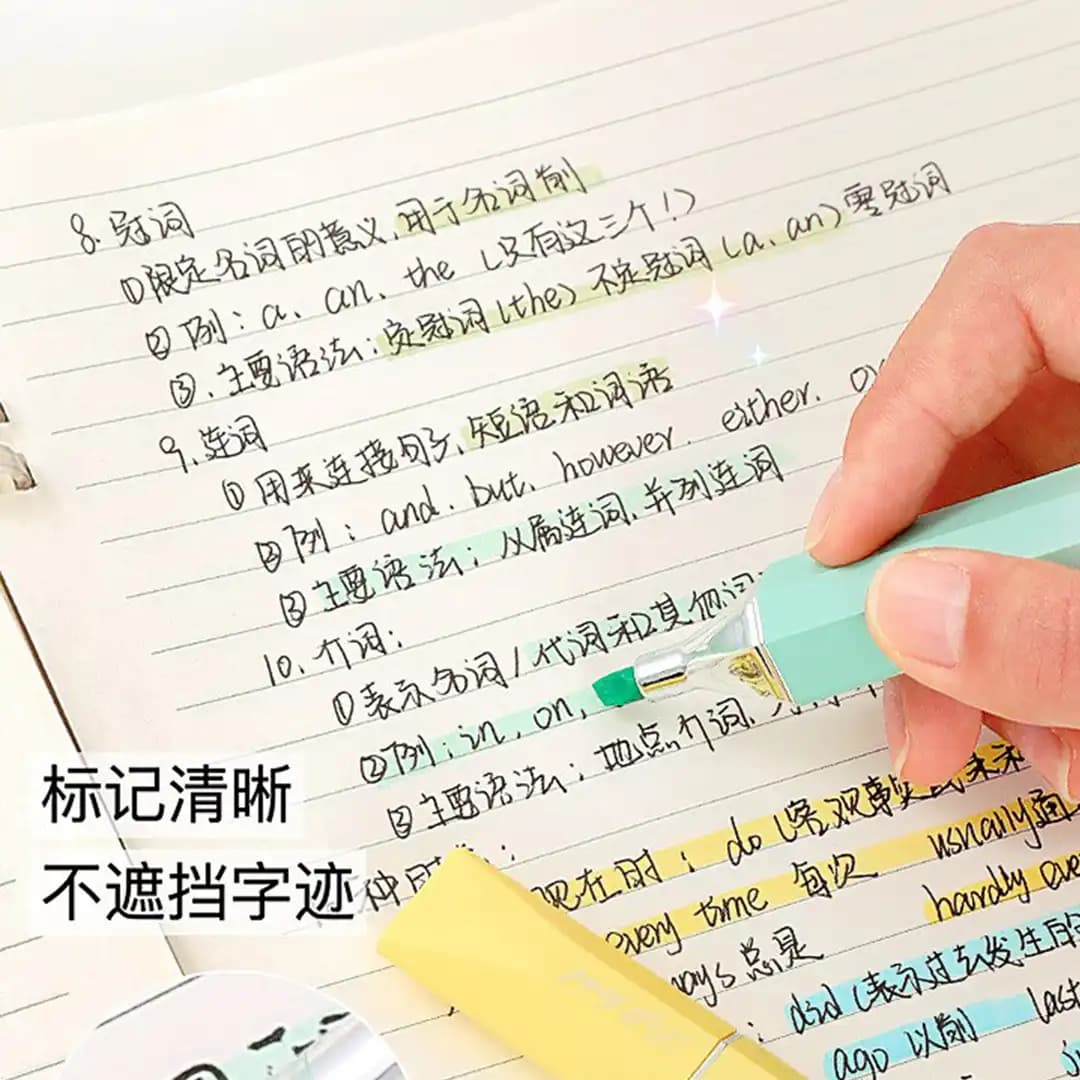 8. 冠词
①限定名词的意义,用于名词前
②例:a、an、the (只有这三个!)
③.主要语法:定冠词(the) 不定冠词(a、an) 零冠词
9.连词
①用来连接句子、短语和词语
②例:and、but、however、either、
③主要语法:从属连词、并列连词
10.介词:
①表示名词/代词和其他词
②例:in、on、
③主要语法:地点介词、
标记清晰
不遮挡字迹
现在时:do (客观事实
every time 每次 usually通
总是 hardly
did (表示过去发生的
ago 以前 last